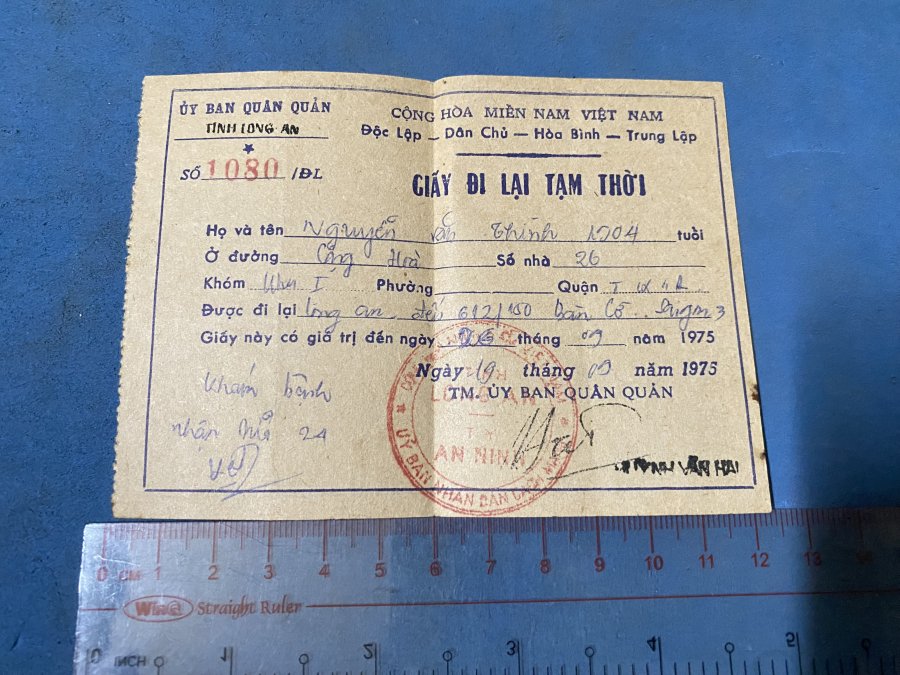 ỦY BAN QUÂN QUẢN
TỈNH LONG AN
SỐ 1080 /ĐL
CỘNG HÒA MIỀN NAM VIỆT NAM
Độc Lập — Dân Chủ — Hòa Bình — Trung Lập
GIẤY ĐI LẠI TẠM THỜI
Họ và tên Nguyễn Văn Thình 1904 tuổi
Ở đường Cộng Hoà Số nhà 26
Khóm Khu I Phường Quận
Được đi lại Long an đến 612/150 Bàn Cờ
Giấy này có giá trị đến ngày 26 tháng 09 năm 1975
Ngày 19 tháng 09 năm 1975
TM. ỦY BAN QUÂN QUẢN
khám bệnh
nhận 24
LONG AN
AN NINH
ỦY BAN NHÂN DÂN CÁCH
HUỲNH VĂN HAI
0 CM 1 2 3 4 5 6 7 8 9 10 11 12 13 14
Straight Ruler
0 INCH 1 2 3 4 5